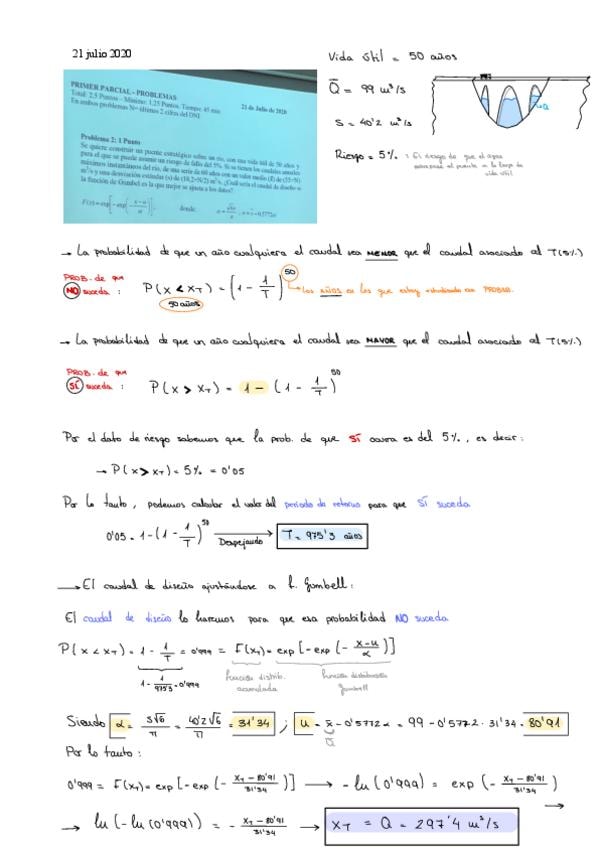 21 julio 2020
Vida útil = 50 años
Q̄ = 99 m³/s
s = 40'2 m³/s
Riesgo = 5% : El riesgo de que el agua
al puente en la
vida útil
PRIMER PARCIAL - PROBLEMAS
Total: 2.5 Puntos – Mínimo: 1.25 Puntos. Tiempo: 45 min
21 de Julio de 2020
En ambos problemas N= últimas 2 cifras del DNI
Problema 2: 1 Punto
Se quiere construir un puente estratégico sobre un río, con una vida útil de 50 años y
para el que se puede asumir un riesgo de fallo del 5%. Si se tienen los caudales anuales
máximos instantáneos del río, de una serie de 60 años con un valor medio (x̄) de (55+N)
m³/s y una desviación estándar (s) de (18,2+N/2) m³/s. ¿Cuál sería el caudal de diseño si
la función de Gumbel es la que mejor se ajusta a los datos?
F(x) = exp[-exp(-(x-u)/α)]; donde: α = √6s/π ; u = x̄ - 0,5772α
→ La probabilidad de que un año cualquiera el caudal sea MENOR que el caudal asociado al T(5%)
PROB. de que
NO suceda : P(x < x_T) = (1 - 1/T)^50 → Los años en los que estoy estudiando esa PROBAB.
50 años
→ La probabilidad de que un año cualquiera el caudal sea MAYOR que el caudal asociado al T(5%)
PROB. de que
SÍ suceda : P(x > x_T) = 1 - (1 - 1/T)^50
Por el dato de riesgo sabemos que la prob. de que SÍ ocurra es del 5%, es decir:
→ P(x > x_T) = 5% = 0'05
Por lo tanto, podemos calcular el valor del periodo de retorno para que SÍ suceda
0'05 = 1 - (1 - 1/T)^50 Despejando → T = 975'3 años
→ El caudal de diseño ajustándose a f. Gumbell:
El caudal de diseño lo haremos para que esa probabilidad NO suceda
P(x < x_T) = 1 - 1/T = 0'999 = F(x_T) = exp[-exp(-(x-u)/α)]
1 - 1/975'3 = 0'999
función distrib. acumulada
función distribución Gumbell
Siendo α = s√6/π = 40'2√6/π = 31'34 ; u = x̄ - 0'5772α = 99 - 0'5772 · 31'34 = 80'91
Q̄
Por lo tanto:
0'999 = F(x_T) = exp[-exp(-(x_T - 80'91)/31'34)] → -ln(0'999) = exp(-(x_T - 80'91)/31'34) →
→ ln(-ln(0'999)) = -(x_T - 80'91)/31'34 → x_T = Q = 297'4 m³/s